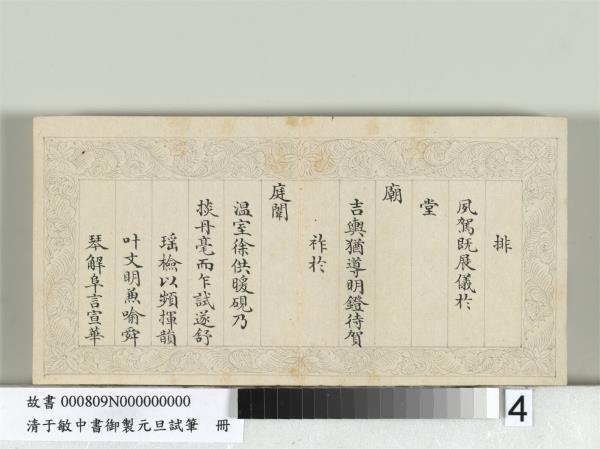 排
夙駕既展儀於
堂
廟
吉輿猶導明鐙待賀
祚於
庭闈
温室徐供暖硯乃
掞丹毫而乍試遂舒
瑶檢以頻揮韻
叶文明兼喻舜
琴解阜言宣華
故書 000809N000000000
清于敏中書御製元旦試筆 冊
4